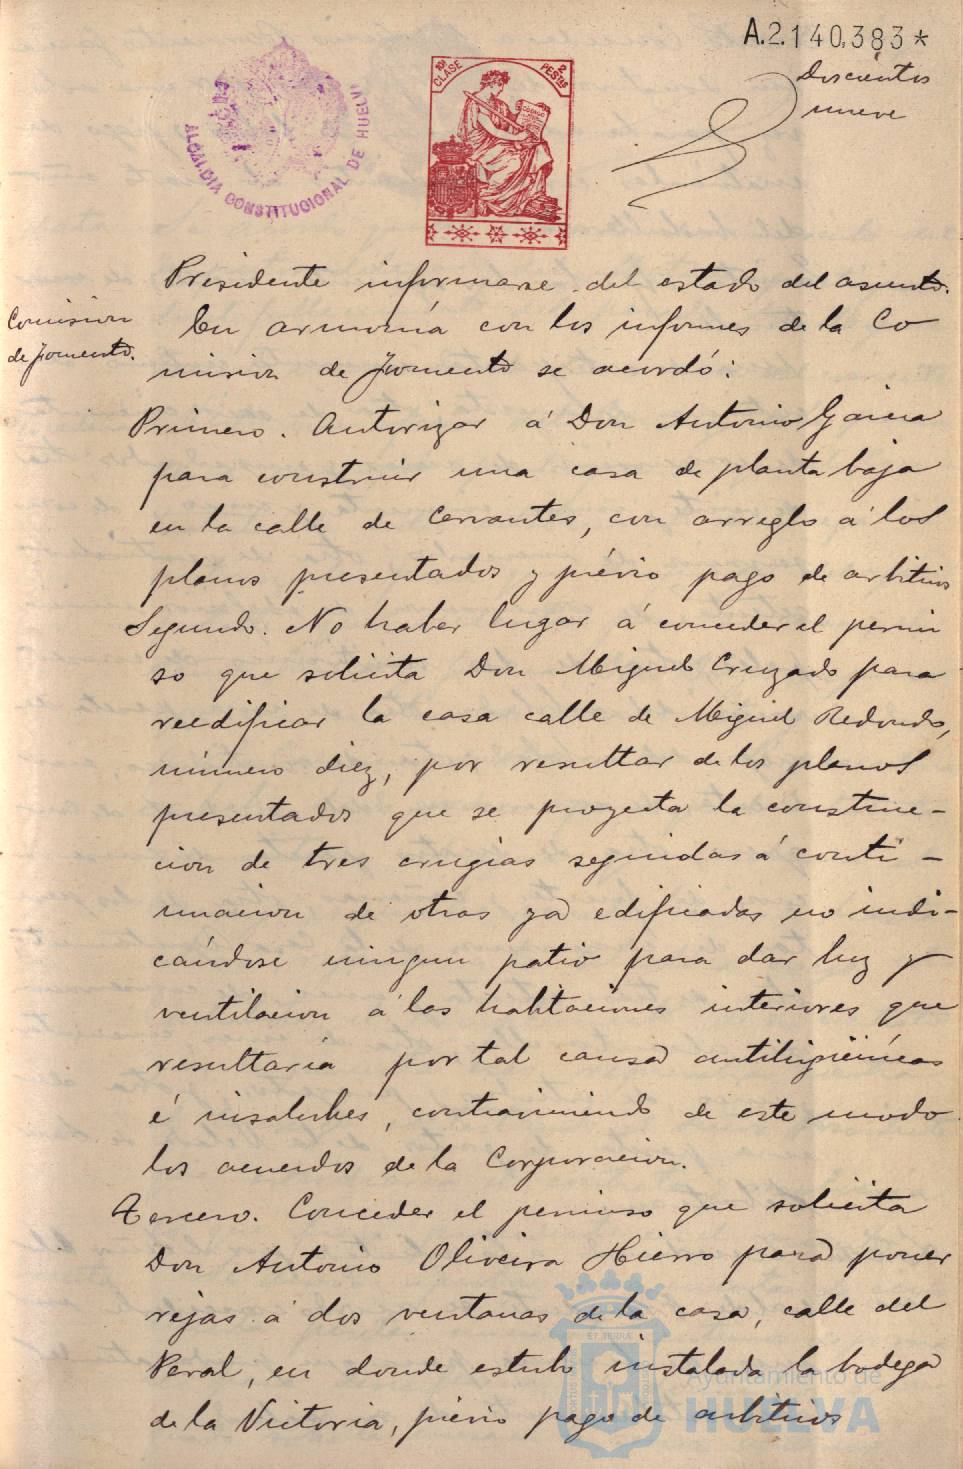 A.2.140,383*
Doscientos
nueve
ALCALDIA CONSTITUCIONAL DE HUELVA
10ª CLASE
2 PESTAS
Presidente informarse del estado del asunto.
Comision
de Fomento.
En armonía con los informes de la Co
mision de Fomento se acordó:
Primero. Autorizar á Don Antonio Garcia
para construir una casa de planta baja
en la calle de Cervantes, con arreglo á los
planos presentados y prévio pago de arbitrios
Segundo. No haber lugar á conceder el permi
so que solicita Don Miguel Cruzado para
reedificar la casa calle de Miguel Redondo,
número diez, por resultar de los planos
presentados que se proyecta la construc-
cion de tres crugias seguidas á conti-
nuacion de otras ya edificadas no indi-
cándose ningun patio para dar luz y
ventilacion á las habitaciones interiores que
resultaria por tal causa antihigiénicas
é insalubres, contraviniendo de este modo
los acuerdos de la Corporacion.
Tercero. Conceder el permiso que solicita
Don Antonio Oliveira Hierro para poner
rejas á dos ventanas de la casa, calle del
Peral, en donde estubo instalada la bodega
de la Victoria, prévio pago de arbitrios
Ayuntamiento de
HUELVA